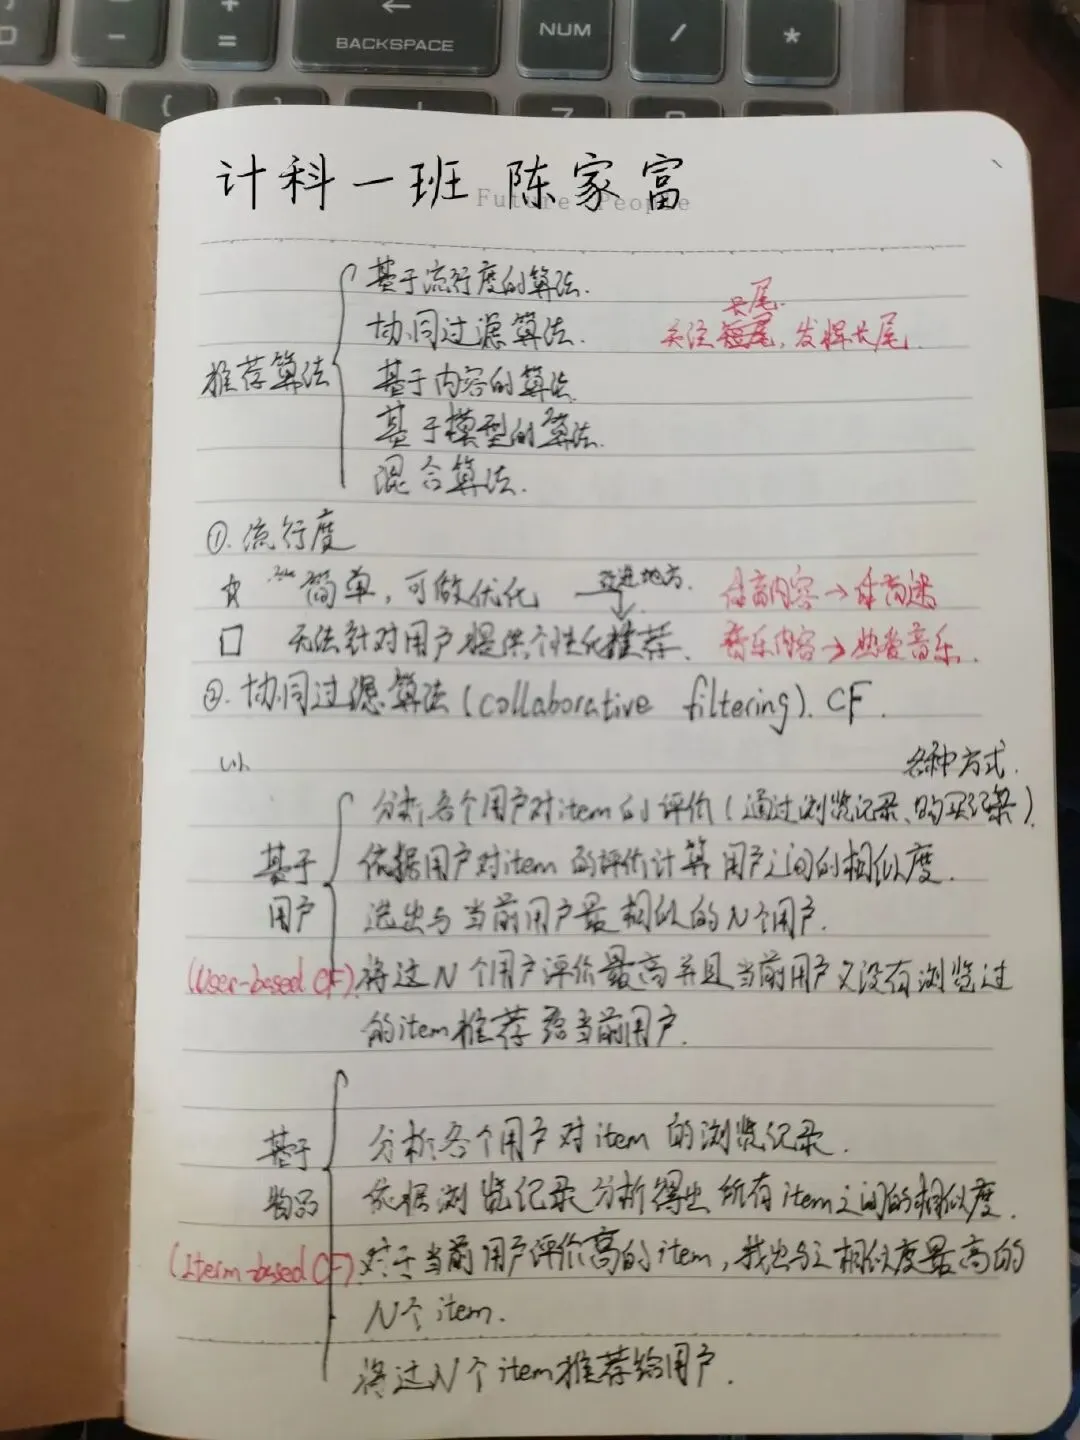 BACKSPACE
NUM
/
*
-
+
=
计科一班 陈家富
Future People
推荐算法
基于流行度的算法.
协同过滤算法.
长尾.
关注短尾, 发挥长尾.
基于内容的算法.
基于模型的算法.
混合算法.
①. 流行度
简单, 可做优化
改进地方.
体育内容→体育迷
无法针对用户提供个性化推荐.
音乐内容→热爱音乐.
②. 协同过滤算法(collaborative filtering). CF.
各种方式.
基于用户
(User-based CF)
分析各个用户对item的评价(通过浏览记录、购买记录).
依据用户对item的评价计算用户之间的相似度.
选出与当前用户最相似的N个用户.
将这N个用户评价最高并且当前用户又没有浏览过
的item推荐给当前用户.
基于物品
(Iterm-based CF)
分析各个用户对item的浏览记录.
依据浏览记录分析得出所有item之间的相似度.
对于当前用户评价高的item, 找出与之相似度最高的
N个item.
将这N个item推荐给用户.